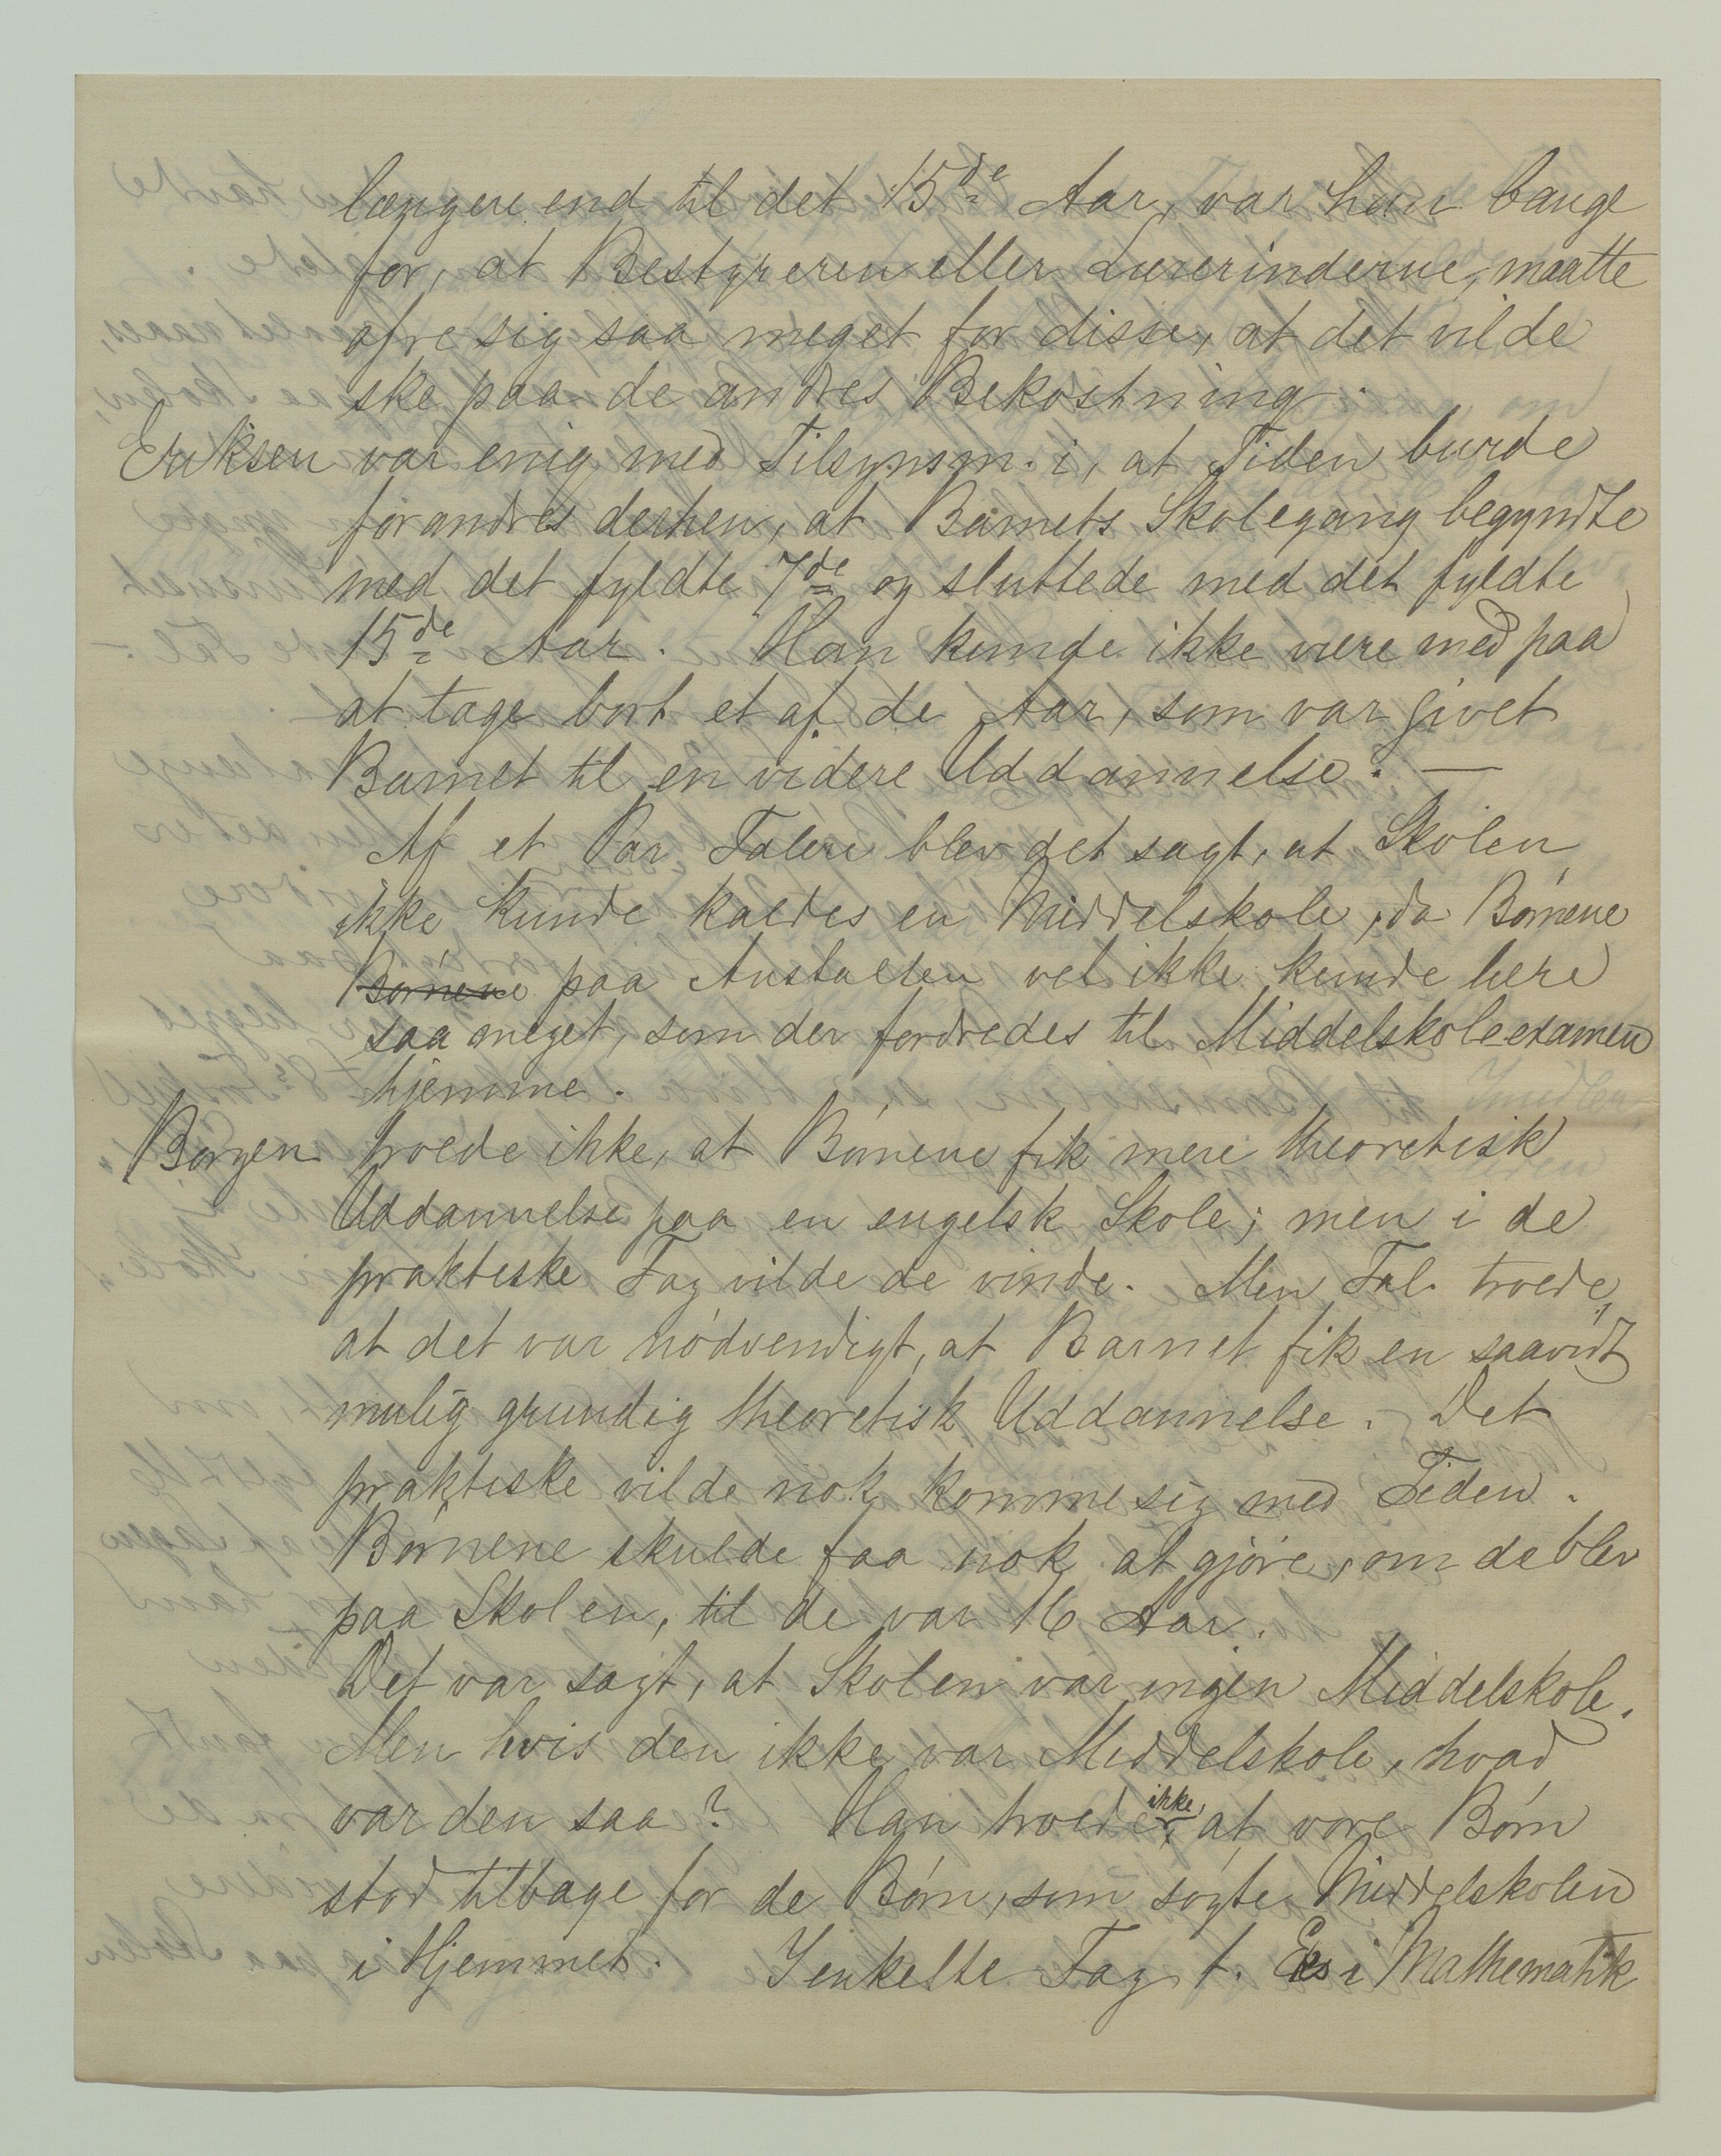 længere end til det 15de Aar, var hun bange
for, at Bestyreren eller Lærerinderne, maatte
ofre sig saa meget for disse, at det vilde
ske paa de andres Bekostning.
Eriksen var enig med Tilsynsm. i, at Tiden burde
forandres derhen, at Barnets Skolegang begyndte
med det fyldte 7de og sluttede med det fyldte
15de Aar. Han kunde ikke være med paa
at tage bort et af de Aar, som var givet
Barnet til en videre Uddannelse. —
Af et Par Talere blev det sagt, at Skolen
ikke kunde kaldes en Middelskole, da Børnene
Børnene paa Anstalten vel ikke kunde lære
saa meget, som der fordredes til Middelskoleexamen
hjemme.
Borgen troede ikke, at Børnene fik mere theoretisk
Uddannelse paa en engelsk Skole; men i de
praktiske Fag vilde de vinde. Men Tal. troede,
at det var nødvendigt, at Barnet fik en saavidt
mulig grundig theoretisk Uddannelse. Det
praktiske vilde nok komme sig med Tiden.
Børnene skulde faa nok at gjøre, om de blev
paa Skolen, til de var 16 Aar.
Det var sagt, at Skolen var ingen Middelskole.
Men hvis den ikke var Middelskole, hvad
var den saa? Han troede ikke, at vore Børn
stod tilbage for de Børn, som søgte Middelskolen
i Hjemmet. I enkelte Fag f. Ex i Mathematik